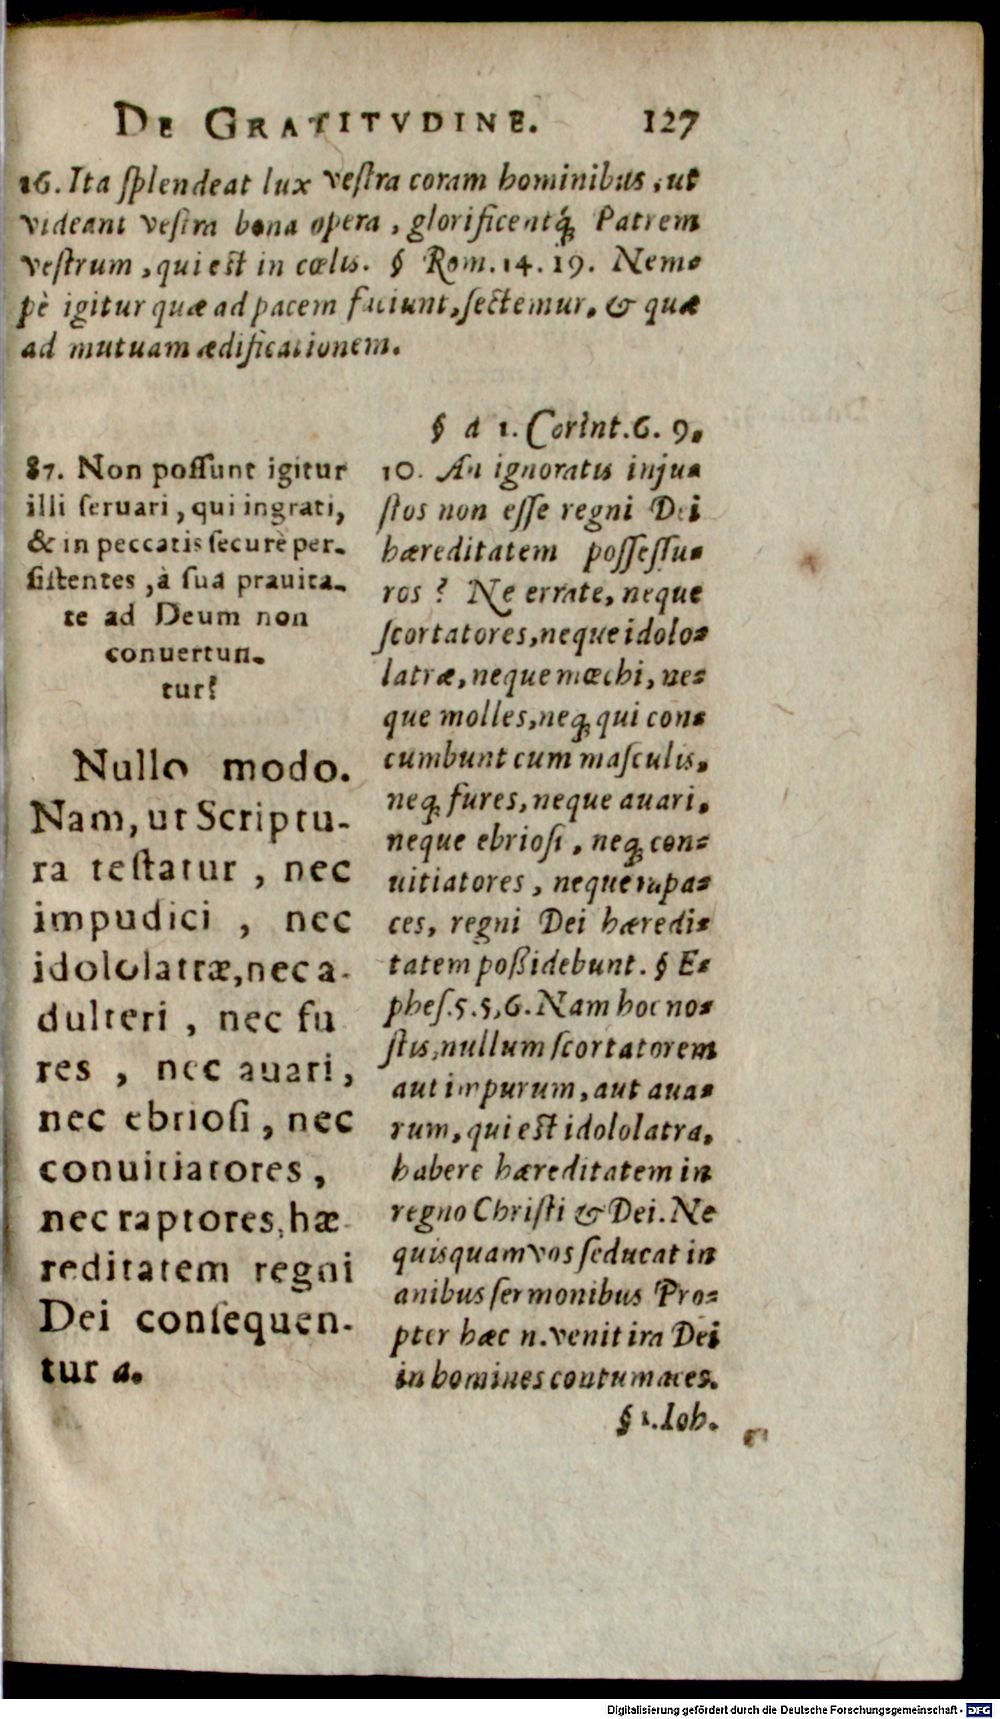 DE GRATITVDINE. 127
16. Ita ſplendeat lux veſtra coram hominibus, ut
videant veſtra bona opera, glorificentq́; Patrem
veſtrum, qui eſt in cœlis. § Rom. 14. 19. Nemo
pè igitur quæ ad pacem faciunt, ſectemur, & quæ
ad mutuam ædificationem.
87. Non poſſunt igitur
illi ſeruari, qui ingrati,
& in peccatis ſecurè per-
ſiſtentes, à ſua prauita-
te ad Deum non
conuertun-
tur?
Nullo modo.
Nam, ut Scriptu-
ra teſtatur, nec
impudici, nec
idololatræ, nec a-
dulteri, nec fu
res, nec auari,
nec ebrioſi, nec
conuitiatores,
nec raptores, hæ
reditatem regni
Dei conſequen-
tur a.
§ a 1. Corint. 6. 9.
10. An ignoratis inju-
ſtos non eſſe regni Dei
hæreditatem poſſeſſu-
ros? Ne errate, neque
ſcortatores, neque idolo-
latræ, neque mœchi, ne-
que molles, neq; qui con-
cumbunt cum maſculis,
neq; fures, neque auari,
neque ebrioſi, neq; con-
uitiatores, neque rapa-
ces, regni Dei hæredi-
tatem poßidebunt. § E-
pheſ. 5. 5, 6. Nam hoc no-
ſtis, nullum ſcortatorem
aut impurum, aut aua-
rum, qui eſt idololatra,
habere hæreditatem in
regno Chriſti & Dei. Ne
quisquam vos ſeducat in
anibus ſermonibus Pro-
pter hæc n. venit ira Dei
in homines contumaces.
§ 1. Ioh.
Digitalisierung gefördert durch die Deutsche Forschungsgemeinschaft - DFG